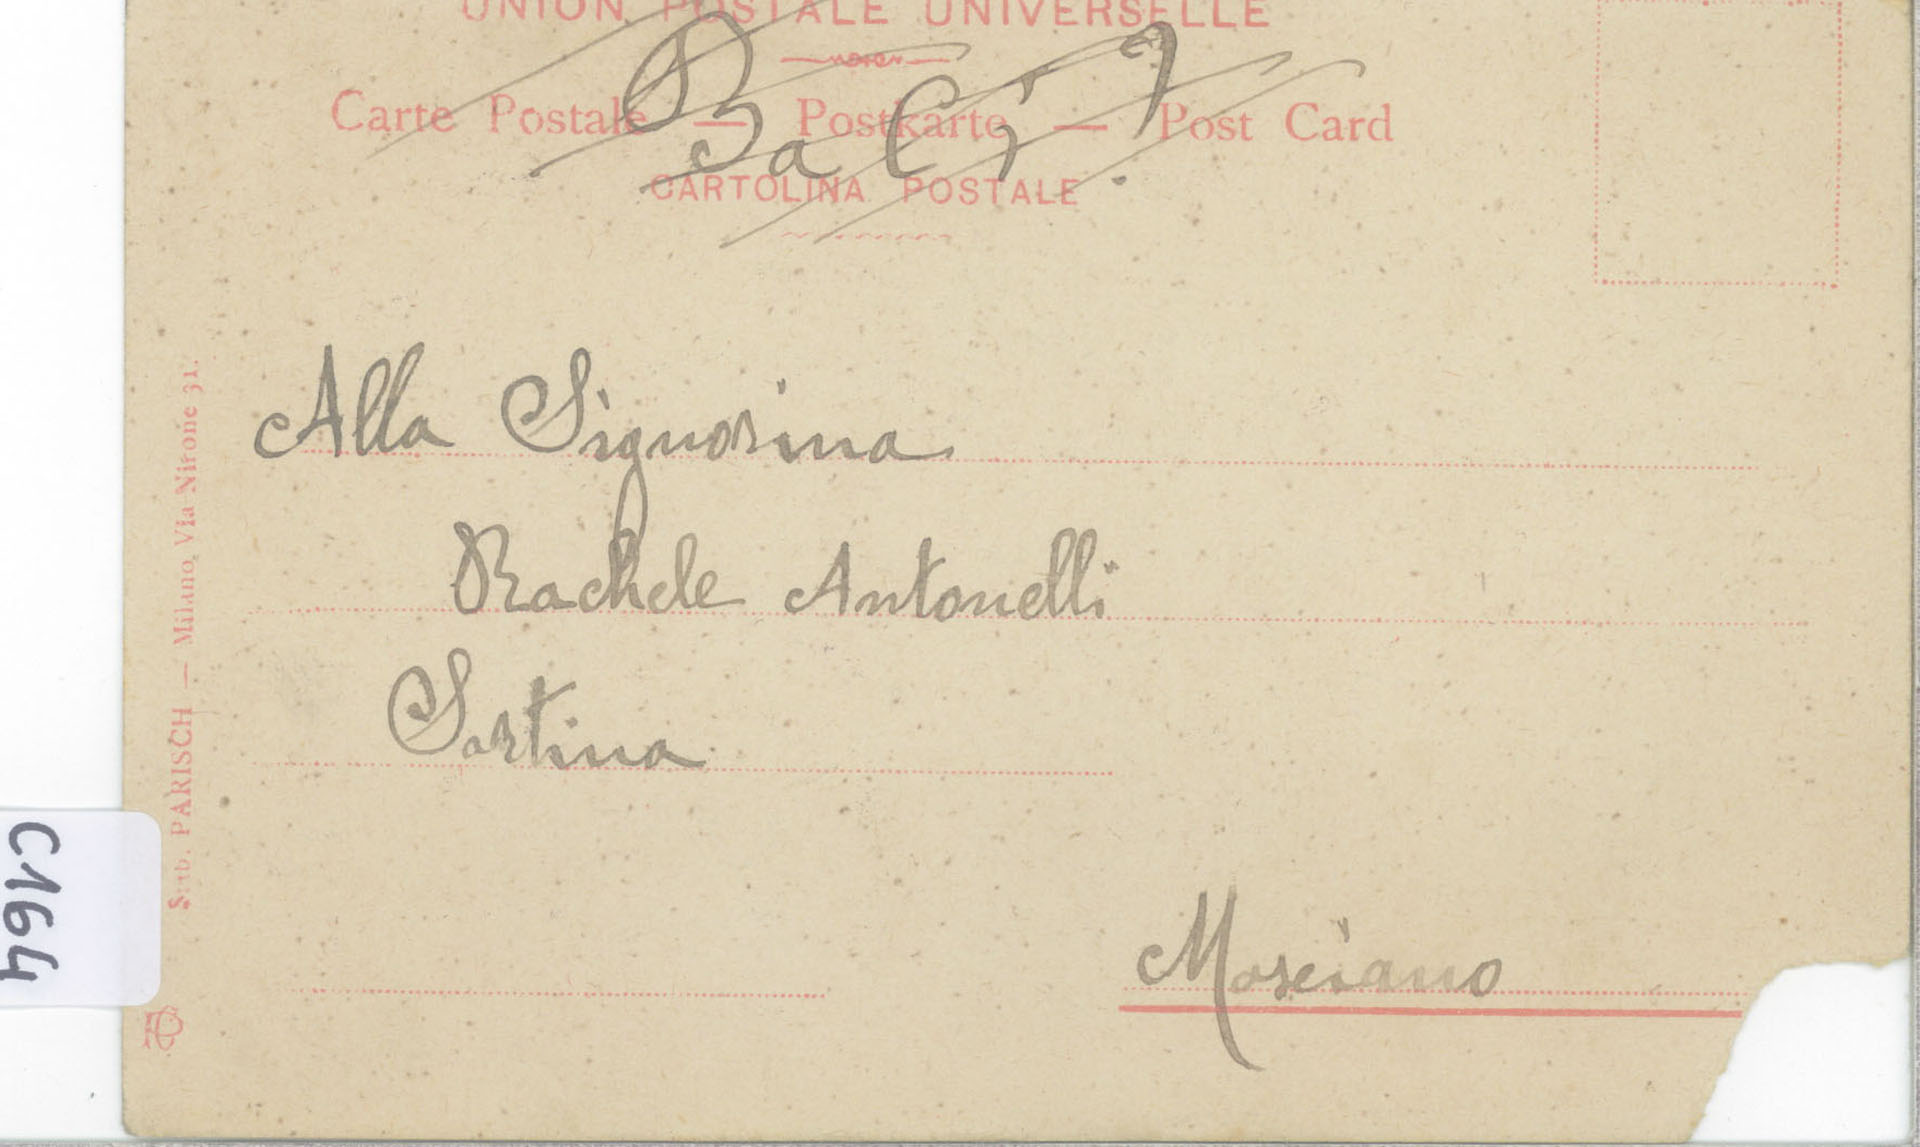 UNION POSTALE UNIVERSELLE
Carte Postale — Postkarte — Post Card
CARTOLINA POSTALE
Baci?
Alla Signorina
Rachele Antonelli
Sartina
Mosciano
Stab. PARISCH — Milano, Via Nirone 31.
C164